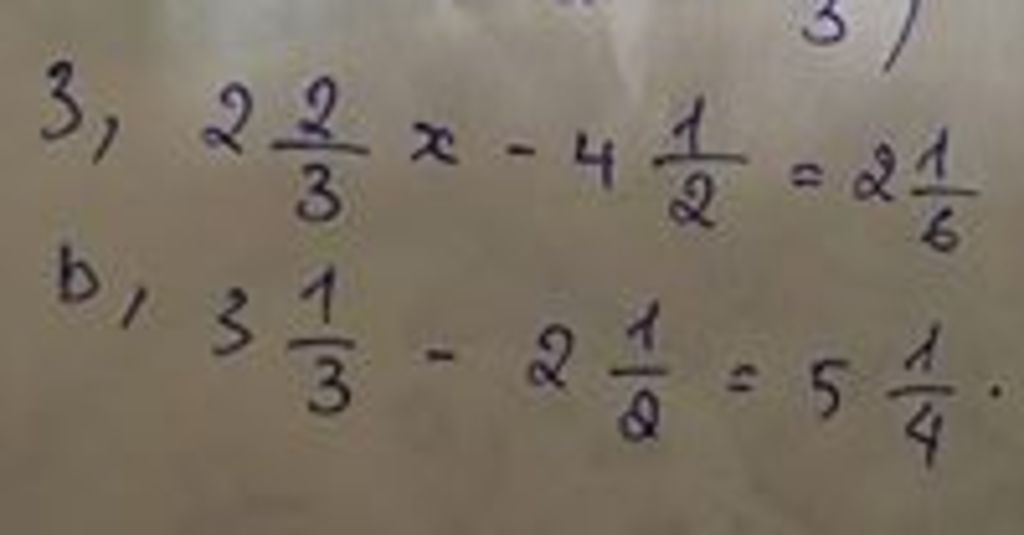 3)
3, 2 2/3 x - 4 1/2 = 2 1/6
b, 3 1/3 - 2 1/2 = 5 1/4 .